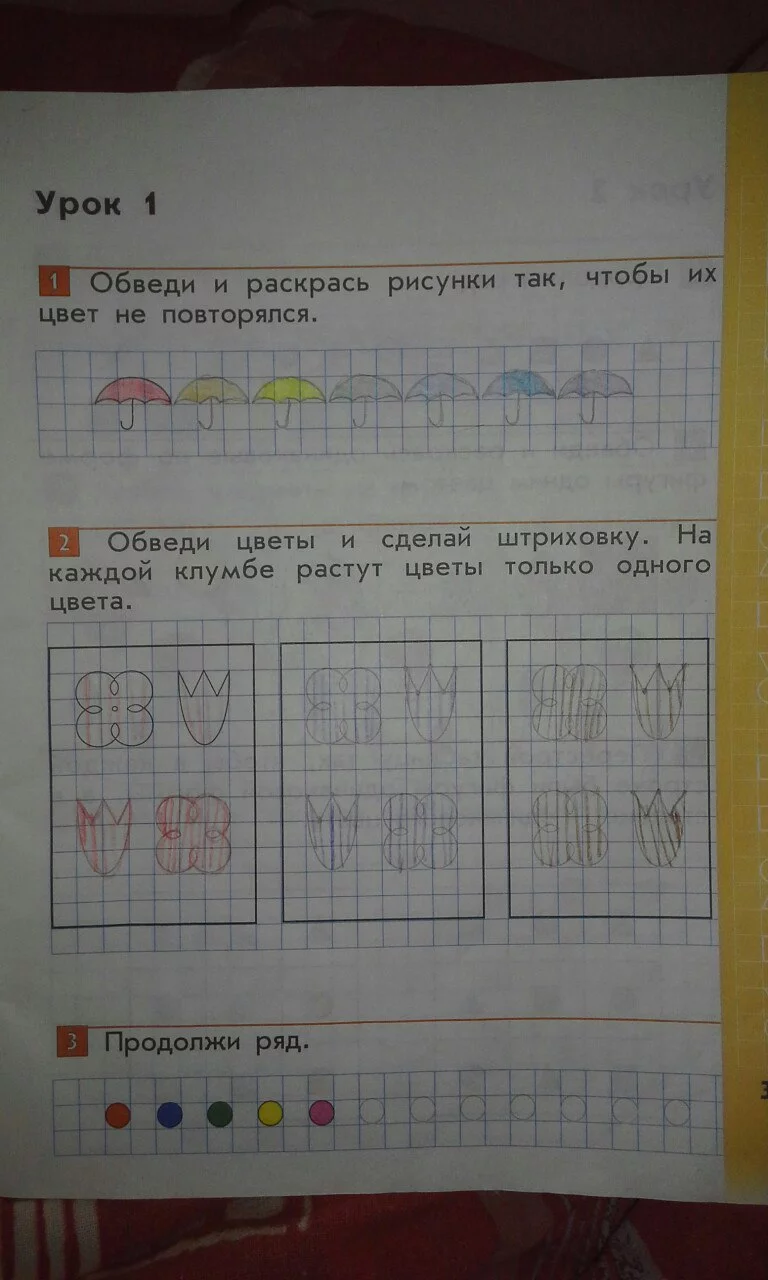 Урок 1
1 Обведи и раскрась рисунки так, чтобы их
цвет не повторялся.
2 Обведи цветы и сделай штриховку. На
каждой клумбе растут цветы только одного
цвета.
3 Продолжи ряд.
3